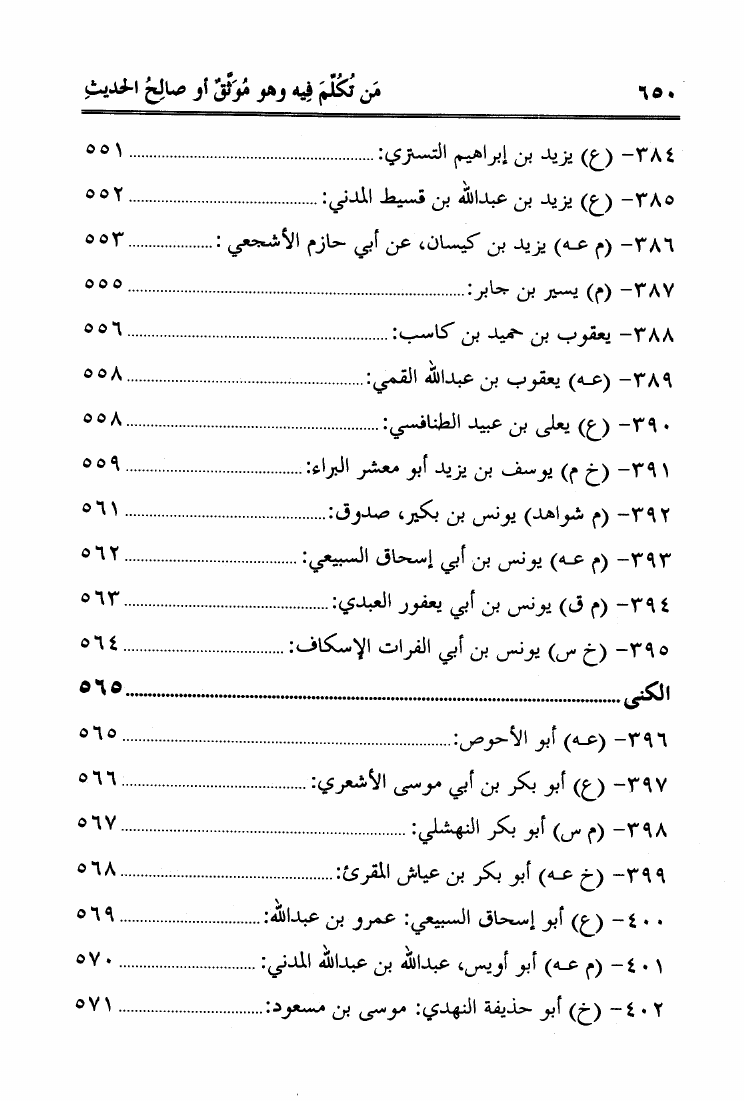 ٦٥٠ مَن تُكُلِّمَ فِيه وهو مُوَثَّقٌ أو صالِحُ الحديثِ
٣٨٤- (ع) يزيد بن إبراهيم التستري: ٥٥١
٣٨٥- (ع) يزيد بن عبدالله بن قسيط المدني: ٥٥٢
٣٨٦- (م عـه) يزيد بن كيسان، عن أبي حازم الأشجعي: ٥٥٣
٣٨٧- (م) يسير بن جابر: ٥٥٥
٣٨٨- يعقوب بن حميد بن كاسب: ٥٥٦
٣٨٩- (عـه) يعقوب بن عبدالله القمي: ٥٥٨
٣٩٠- (ع) يعلى بن عبيد الطنافسي: ٥٥٨
٣٩١- (خ م) يوسف بن يزيد أبو معشر البراء: ٥٥٩
٣٩٢- (م شواهد) يونس بن بكير، صدوق: ٥٦١
٣٩٣- (م عـه) يونس بن أبي إسحاق السبيعي: ٥٦٢
٣٩٤- (م ق) يونس بن أبي يعفور العبدي: ٥٦٣
٣٩٥- (خ س) يونس بن أبي الفرات الإسكاف: ٥٦٤
الكنى ٥٦٥
٣٩٦- (عـه) أبو الأحوص: ٥٦٥
٣٩٧- (ع) أبو بكر بن أبي موسى الأشعري: ٥٦٦
٣٩٨- (م س) أبو بكر النهشلي: ٥٦٧
٣٩٩- (خ عـه) أبو بكر بن عياش المقرئ: ٥٦٨
٤٠٠- (ع) أبو إسحاق السبيعي: عمرو بن عبدالله: ٥٦٩
٤٠١- (م عـه) أبو أويس، عبدالله بن عبدالله المدني: ٥٧٠
٤٠٢- (خ) أبو حذيفة النهدي: موسى بن مسعود: ٥٧١